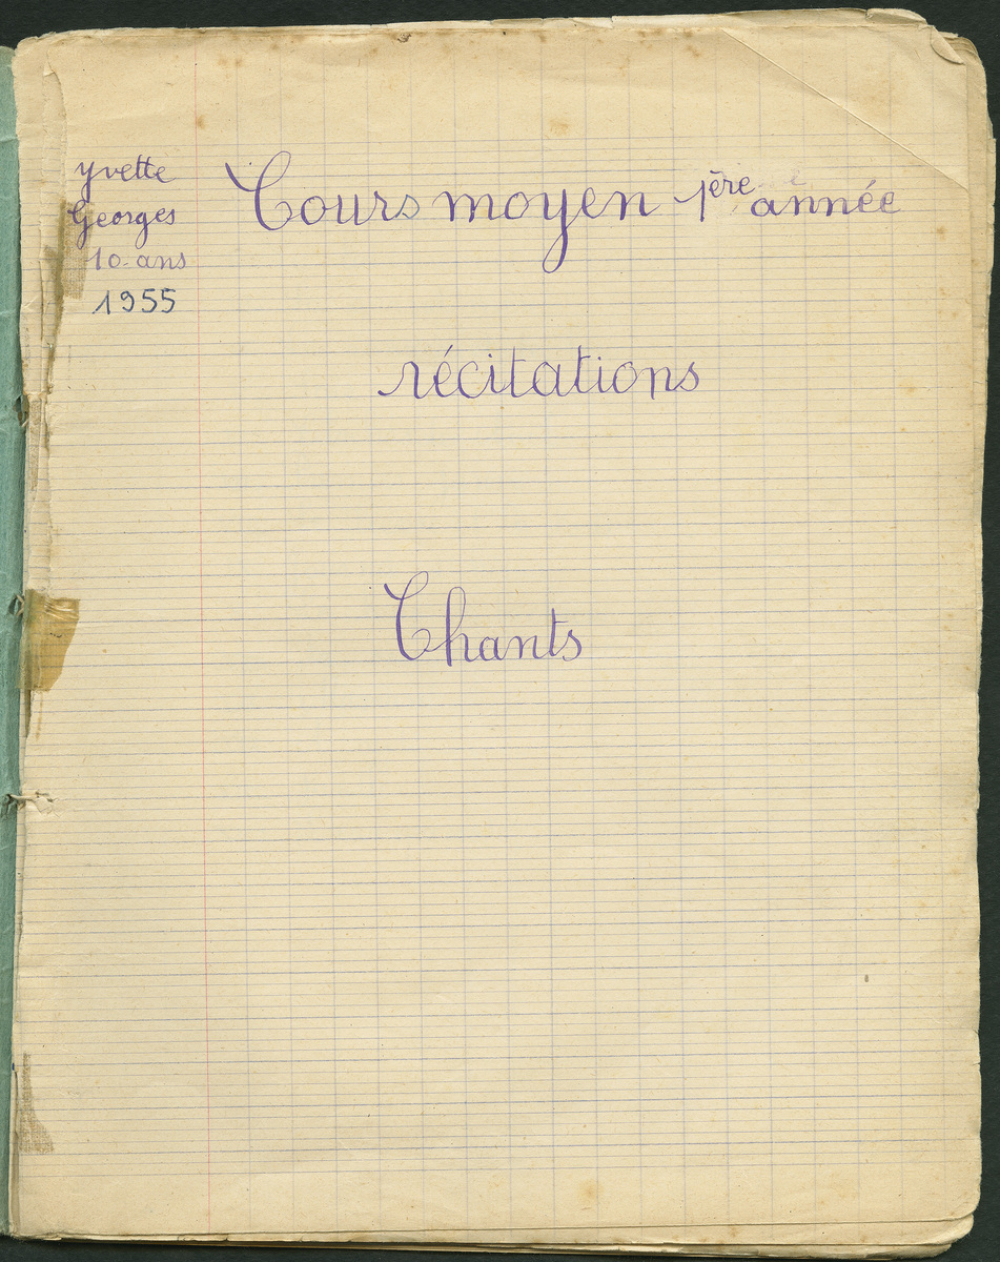 yvette
Georges
10 ans
1955
Cours moyen 1ère année
récitations
Chants